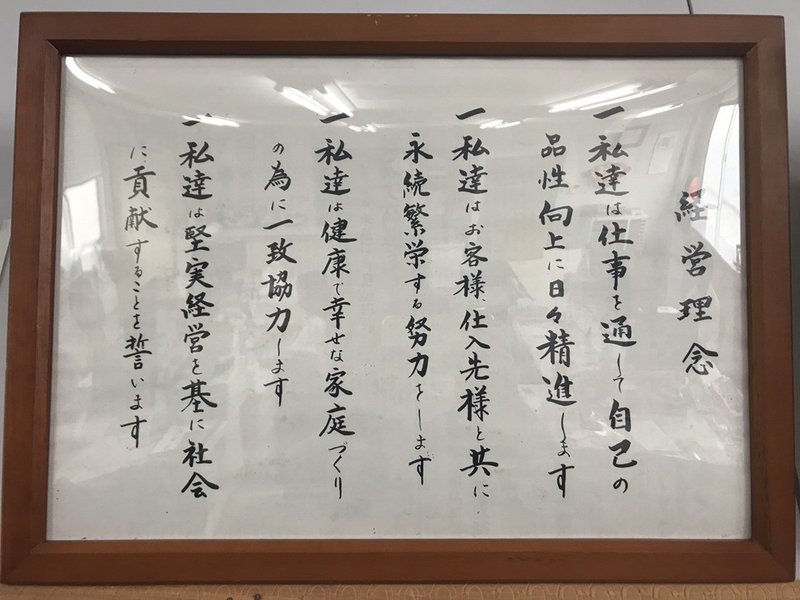 経営理念
一 私達は仕事を通して自己の
品性向上に日々精進します
一 私達はお客様、仕入先様と共に
永続繁栄する努力をします
一 私達は健康で幸せな家庭づくり
の為に一致協力します
一 私達は堅実経営を基に社会
に貢献することを誓います